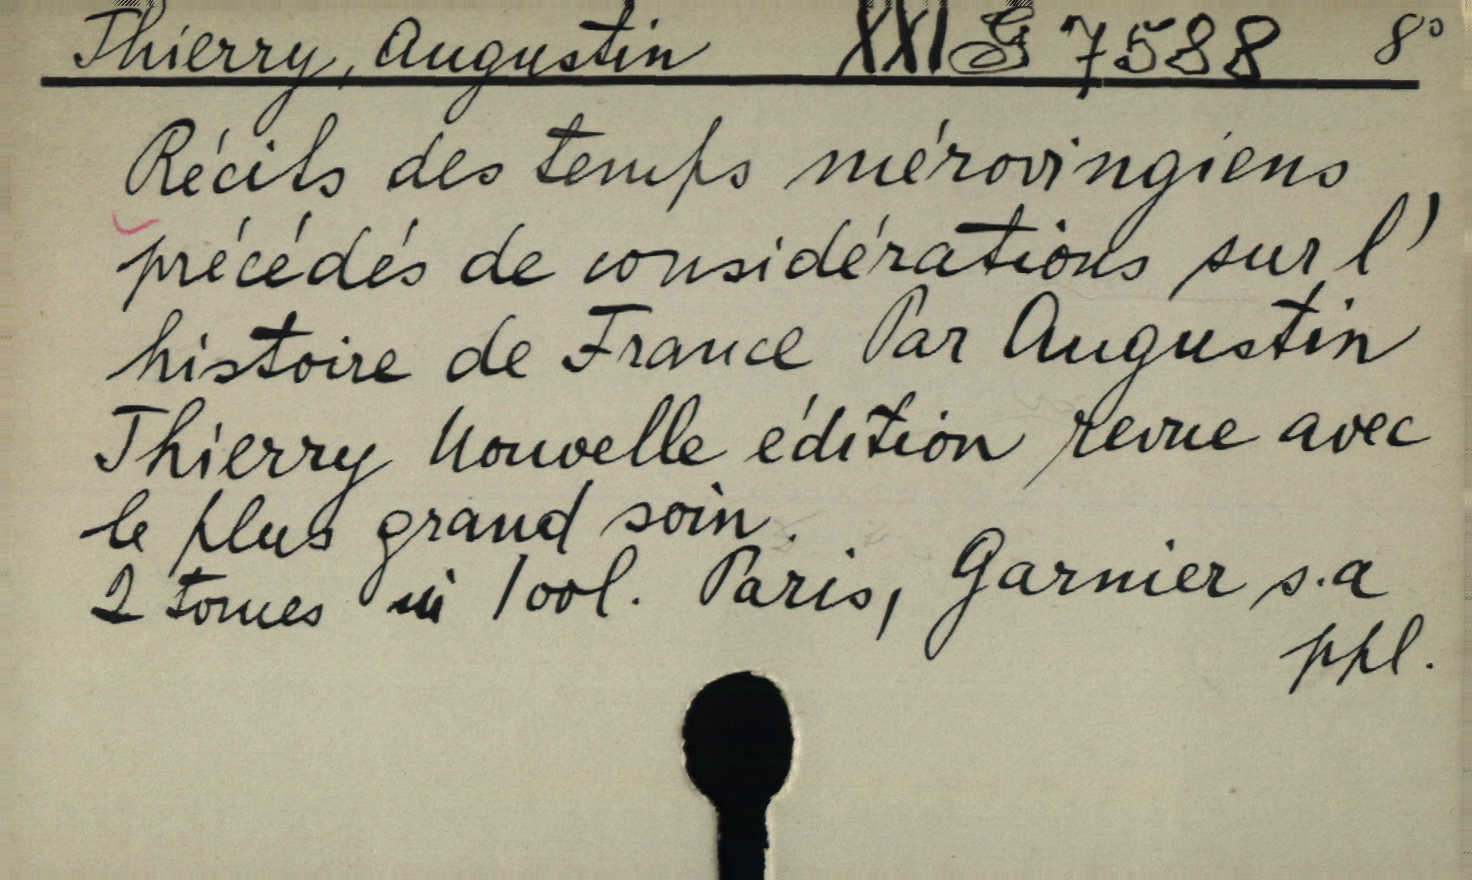 Thierry, Augustin XXI G 7588 8°
Récits des temps mérovingiens
précédés de considérations sur l'
histoire de France Par Augustin
Thierry Nouvelle édition revue avec
le plus grand soin.
2 tomes in 1 vol. Paris, Garnier s.a
ppl.